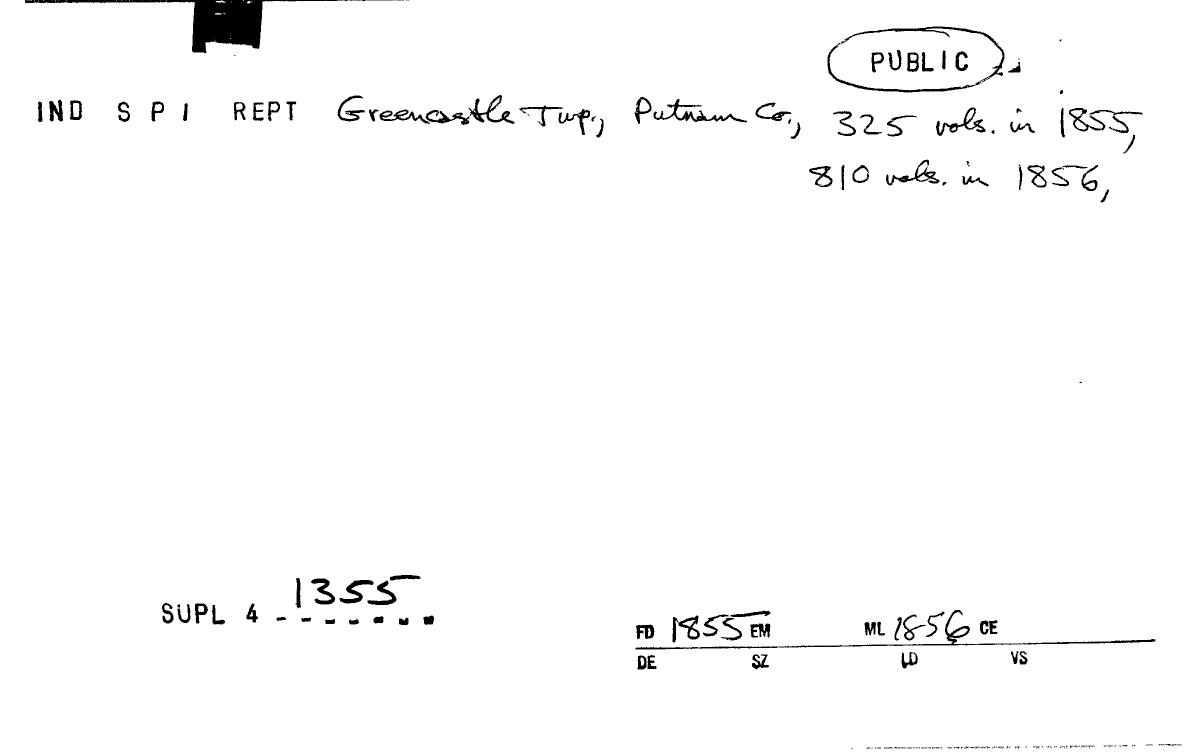 PUBLIC
IND S P I REPT Greencastle Twp., Putnam Co., 325 vols. in 1855,
810 vols. in 1856,
SUPL 4 1355
FD 1855 EM ML 1856 CE
DE SZ LD VS